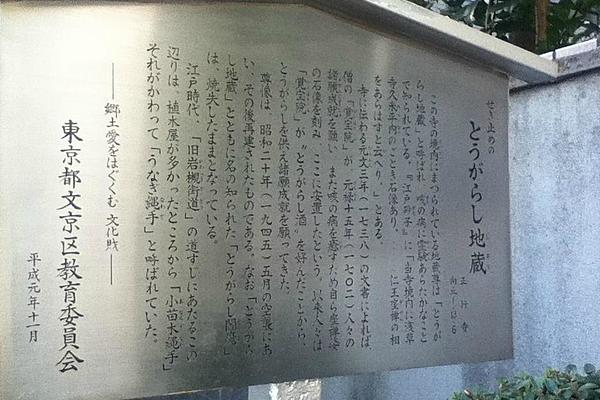 せき止めの
とうがらし地蔵
正行寺
向丘一-一三-六
この寺の境内にまつられている地蔵尊は「とうが
らし地蔵」と呼ばれ、咳の病に霊験あらたかなこと
で知られている。『江戸砂子』に「当寺境内に浅草
寺久米平内のごとき石像あり、 仁王坐禅の相
をあらはすと云へり」とある。
寺に伝わる元文三年(一七三八)の文書によれば、
僧の「覚宝院」が、元禄十五年(一七〇二)人々の
諸願成就を願い、また咳の病を癒すため自ら坐禅姿
の石像を刻み、ここに安置したという。以来人々は
「覚宝院」が〝とうがらし酒〟を好んだことから、
とうがらしを供え諸願成就を願ってきた。
尊像は、昭和二十年(一九四五)五月の空襲にあ
い、その後再建されたものである。なお「とうがら
し地蔵」とともに名の知られた「とうがらし閻魔」
は、焼失したままとなっている。
江戸時代、「旧岩槻街道」の道すじにあたるこの
辺りは、植木屋が多かったところから「小苗木縄手」
それがかわって「うなぎ縄手」と呼ばれていた。
――郷土愛をはぐくむ 文化財――
東京都文京区教育委員会
平成元年十一月